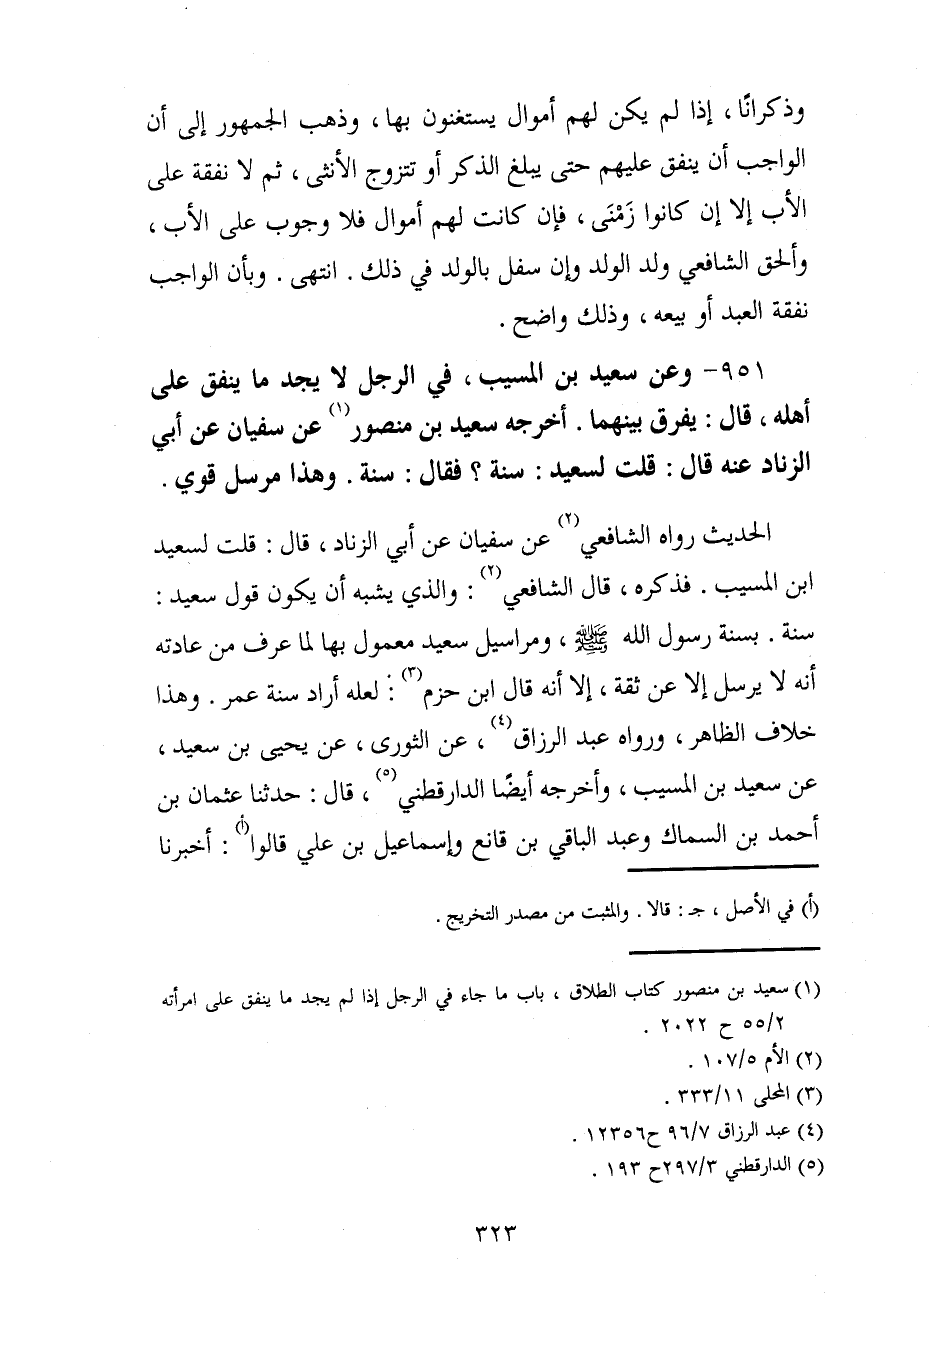 وذكرانًا ، إذا لم يكن لهم أموال يستغنون بها ، وذهب الجمهور إلى أن
الواجب أن ينفق عليهم حتى يبلغ الذكر أو تتزوج الأنثى ، ثم لا نفقة على
الأب إلا إن كانوا زَمْنَى ، فإن كانت لهم أموال فلا وجوب على الأب ،
وألحق الشافعي ولد الولد وإن سفل بالولد في ذلك . انتهى . وبأن الواجب
نفقة العبد أو بيعه ، وذلك واضح .
٩٥١- وعن سعيد بن المسيب ، في الرجل لا يجد ما ينفق على
أهله ، قال : يفرق بينهما . أخرجه سعيد بن منصور(١) عن سفيان عن أبي
الزناد عنه قال : قلت لسعيد : سنة ؟ فقال : سنة . وهذا مرسل قوي .
الحديث رواه الشافعي(٢) عن سفيان عن أبي الزناد ، قال : قلت لسعيد
ابن المسيب . فذكره ، قال الشافعي(٢) : والذي يشبه أن يكون قول سعيد :
سنة . بسنة رسول الله ﷺ ، ومراسيل سعيد معمول بها لما عرف من عادته
أنه لا يرسل إلا عن ثقة ، إلا أنه قال ابن حزم(٣) : لعله أراد سنة عمر . وهذا
خلاف الظاهر ، ورواه عبد الرزاق(٤) ، عن الثورى ، عن يحيى بن سعيد ،
عن سعيد بن المسيب ، وأخرجه أيضًا الدارقطني(٥) ، قال : حدثنا عثمان بن
أحمد بن السماك وعبد الباقي بن قانع وإسماعيل بن علي قالوا(أ) : أخبرنا
(أ) في الأصل ، جـ : قالا . والمثبت من مصدر التخريج .
(١) سعيد بن منصور كتاب الطلاق ، باب ما جاء في الرجل إذا لم يجد ما ينفق على امرأته
٥٥/٢ ح ٢٠٢٢ .
(٢) الأم ١٠٧/٥ .
(٣) المحلى ٣٣٣/١١ .
(٤) عبد الرزاق ٩٦/٧ ح١٢٣٥٦ .
(٥) الدارقطني ٢٩٧/٣ح ١٩٣ .
٣٢٣